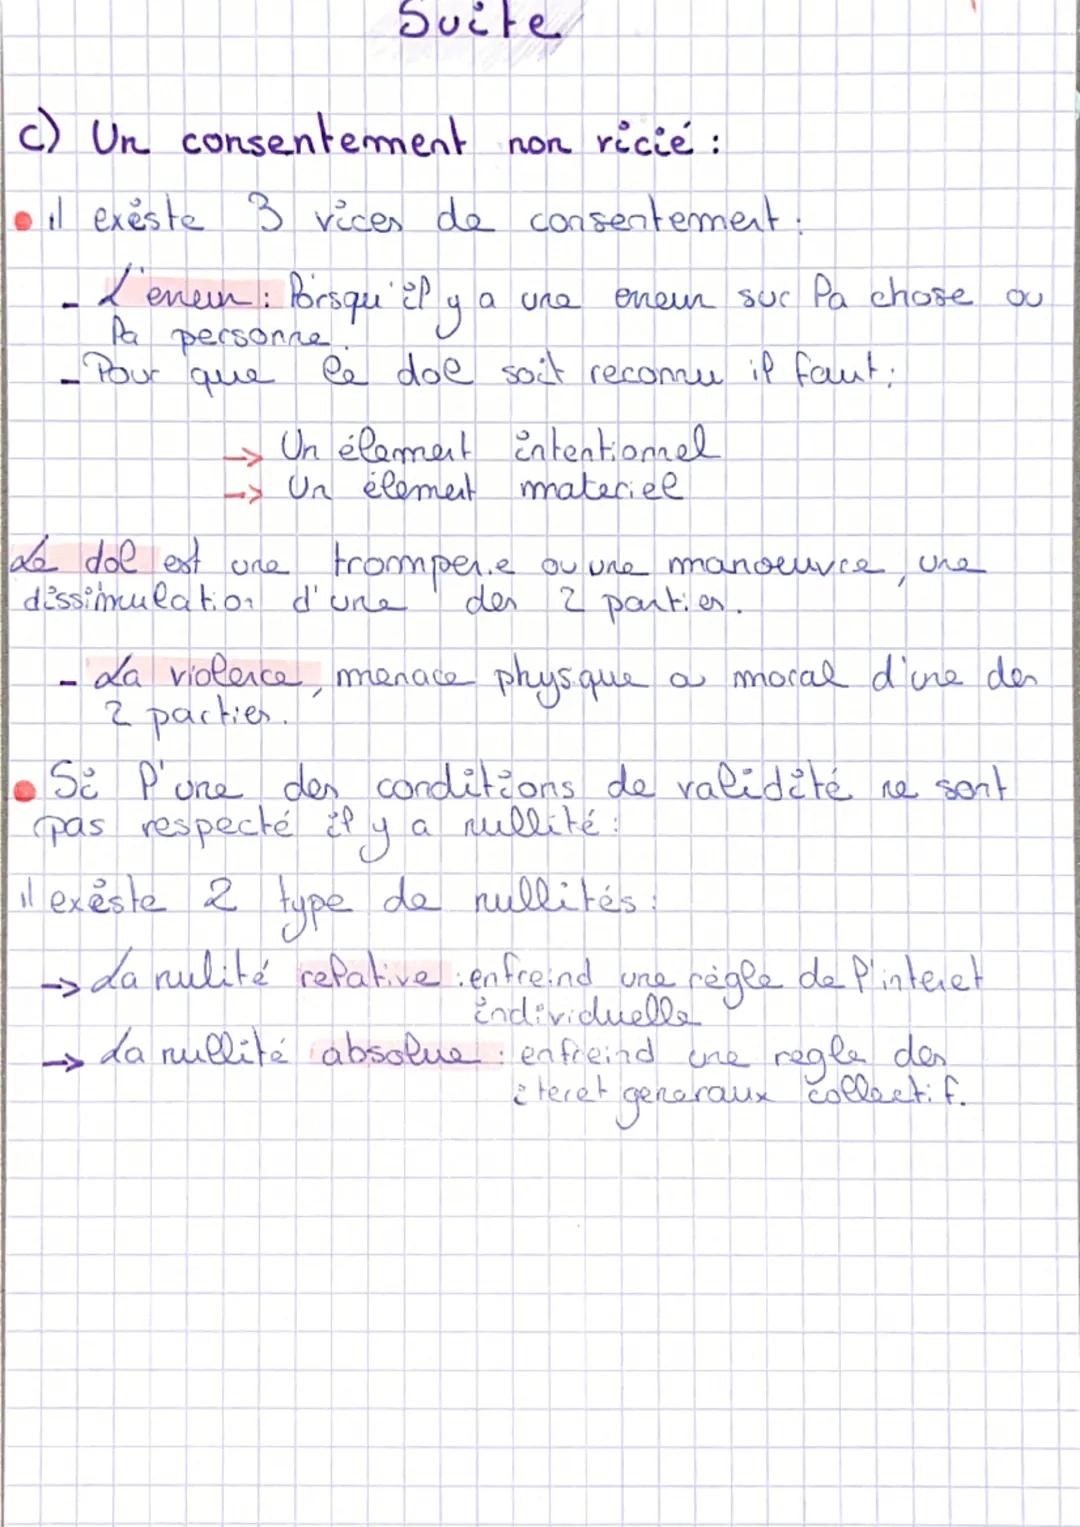 Suite
c) Un consentement non vicié :
• il existe 3 vices de consentement :
- L'erreur : lorsqu'il y a une erreur sur la chose ou
la personne.
- Pour que le dol soit reconnu il faut :
-> Un élement intentionnel
-> Un élement materiel
Le dol est une tromperie ou une manoeuvre, une
dissimulation d'une des 2 parties.
- La violence, menace physque a moral d'une des
2 parties.
• Si l'une des conditions de validité ne sont
pas respecté il y a nullité :
il existe 2 type de nullités :
-> La nulité relative : enfreind une règle de l'interet
individuelle
-> La nullité absolue : enfreind une regle des
iteret generaux collectif.